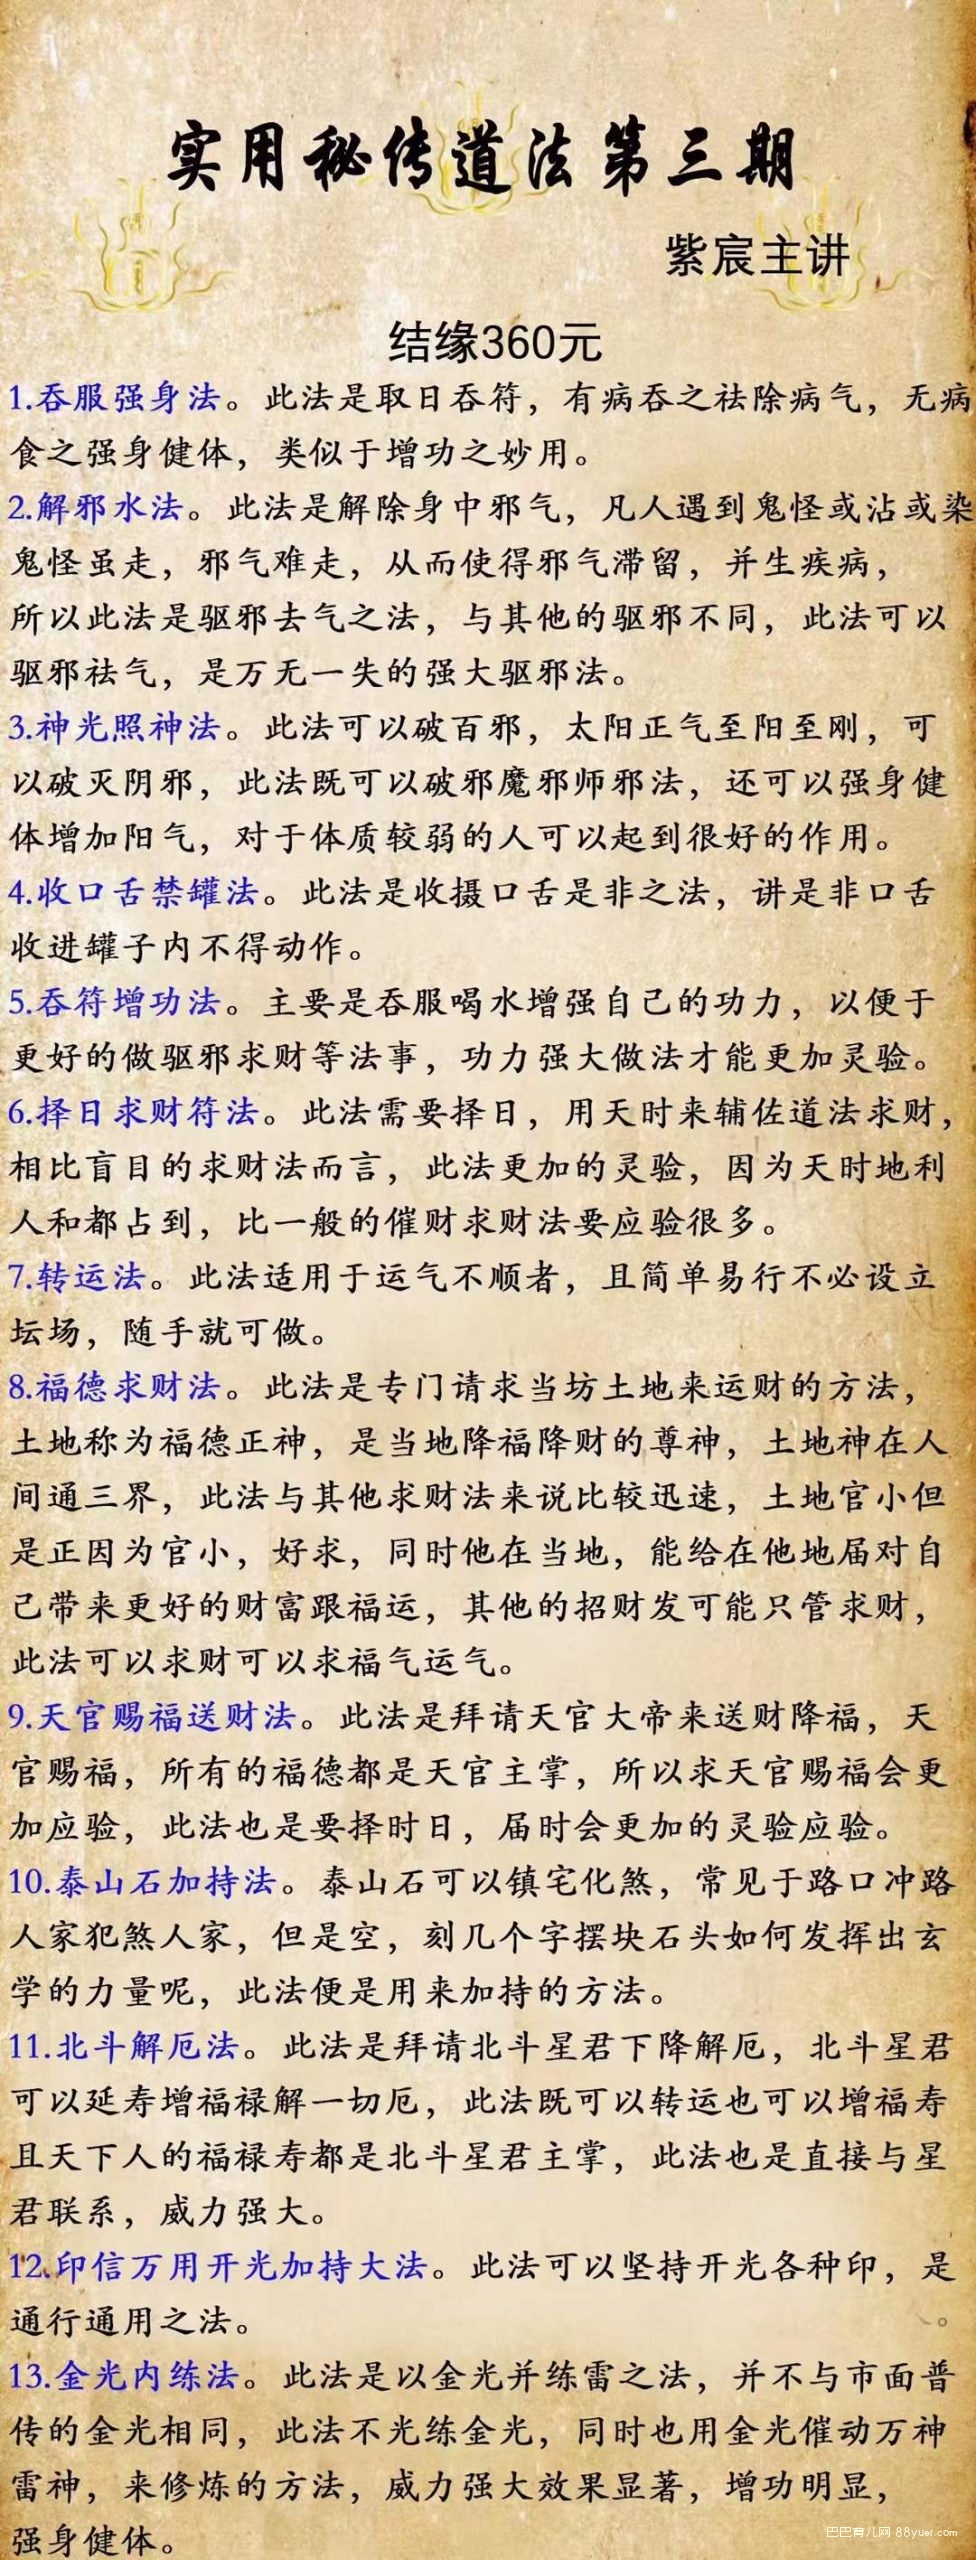 实用秘传道法第三期
紫宸主讲
结缘360元
1.吞服强身法。此法是取日吞符，有病吞之祛除病气，无病
食之强身健体，类似于增功之妙用。
2.解邪水法。此法是解除身中邪气，凡人遇到鬼怪或沾或染
鬼怪虽走，邪气难走，从而使得邪气滞留，并生疾病，
所以此法是驱邪去气之法，与其他的驱邪不同，此法可以
驱邪祛气，是万无一失的强大驱邪法。
3.神光照神法。此法可以破百邪，太阳正气至阳至刚，可
以破灭阴邪，此法既可以破邪魔邪师邪法，还可以强身健
体增加阳气，对于体质较弱的人可以起到很好的作用。
4.收口舌禁罐法。此法是收摄口舌是非之法，讲是非口舌
收进罐子内不得动作。
5.吞符增功法。主要是吞服喝水增强自己的功力，以便于
更好的做驱邪求财等法事，功力强大做法才能更加灵验。
6.择日求财符法。此法需要择日，用天时来辅佐道法求财，
相比盲目的求财法而言，此法更加的灵验，因为天时地利
人和都占到，比一般的催财求财法要应验很多。
7.转运法。此法适用于运气不顺者，且简单易行不必设立
坛场，随手就可做。
8.福德求财法。此法是专门请求当坊土地来运财的方法，
土地称为福德正神，是当地降福降财的尊神，土地神在人
间通三界，此法与其他求财法来说比较迅速，土地官小但
是正因为官小，好求，同时他在当地，能给在他地届对自
己带来更好的财富跟福运，其他的招财发可能只管求财，
此法可以求财可以求福气运气。
9.天官赐福送财法。此法是拜请天官大帝来送财降福，天
官赐福，所有的福德都是天官主掌，所以求天官赐福会更
加应验，此法也是要择时日，届时会更加的灵验应验。
10.泰山石加持法。泰山石可以镇宅化煞，常见于路口冲路
人家犯煞人家，但是空，刻几个字摆块石头如何发挥出玄
学的力量呢，此法便是用来加持的方法。
11.北斗解厄法。此法是拜请北斗星君下降解厄，北斗星君
可以延寿增福禄解一切厄，此法既可以转运也可以增福寿
且天下人的福禄寿都是北斗星君主掌，此法也是直接与星
君联系，威力强大。
12.印信万用开光加持大法。此法可以坚持开光各种印，是
通行通用之法。
13.金光内练法。此法是以金光并练雷之法，并不与市面普
传的金光相同，此法不光练金光，同时也用金光催动万神
雷神，来修炼的方法，威力强大效果显著，增功明显，
强身健体。
巴巴育儿网 88yuer.com